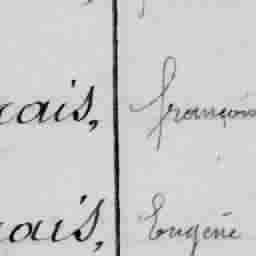 rais, françois
rais, Eugène